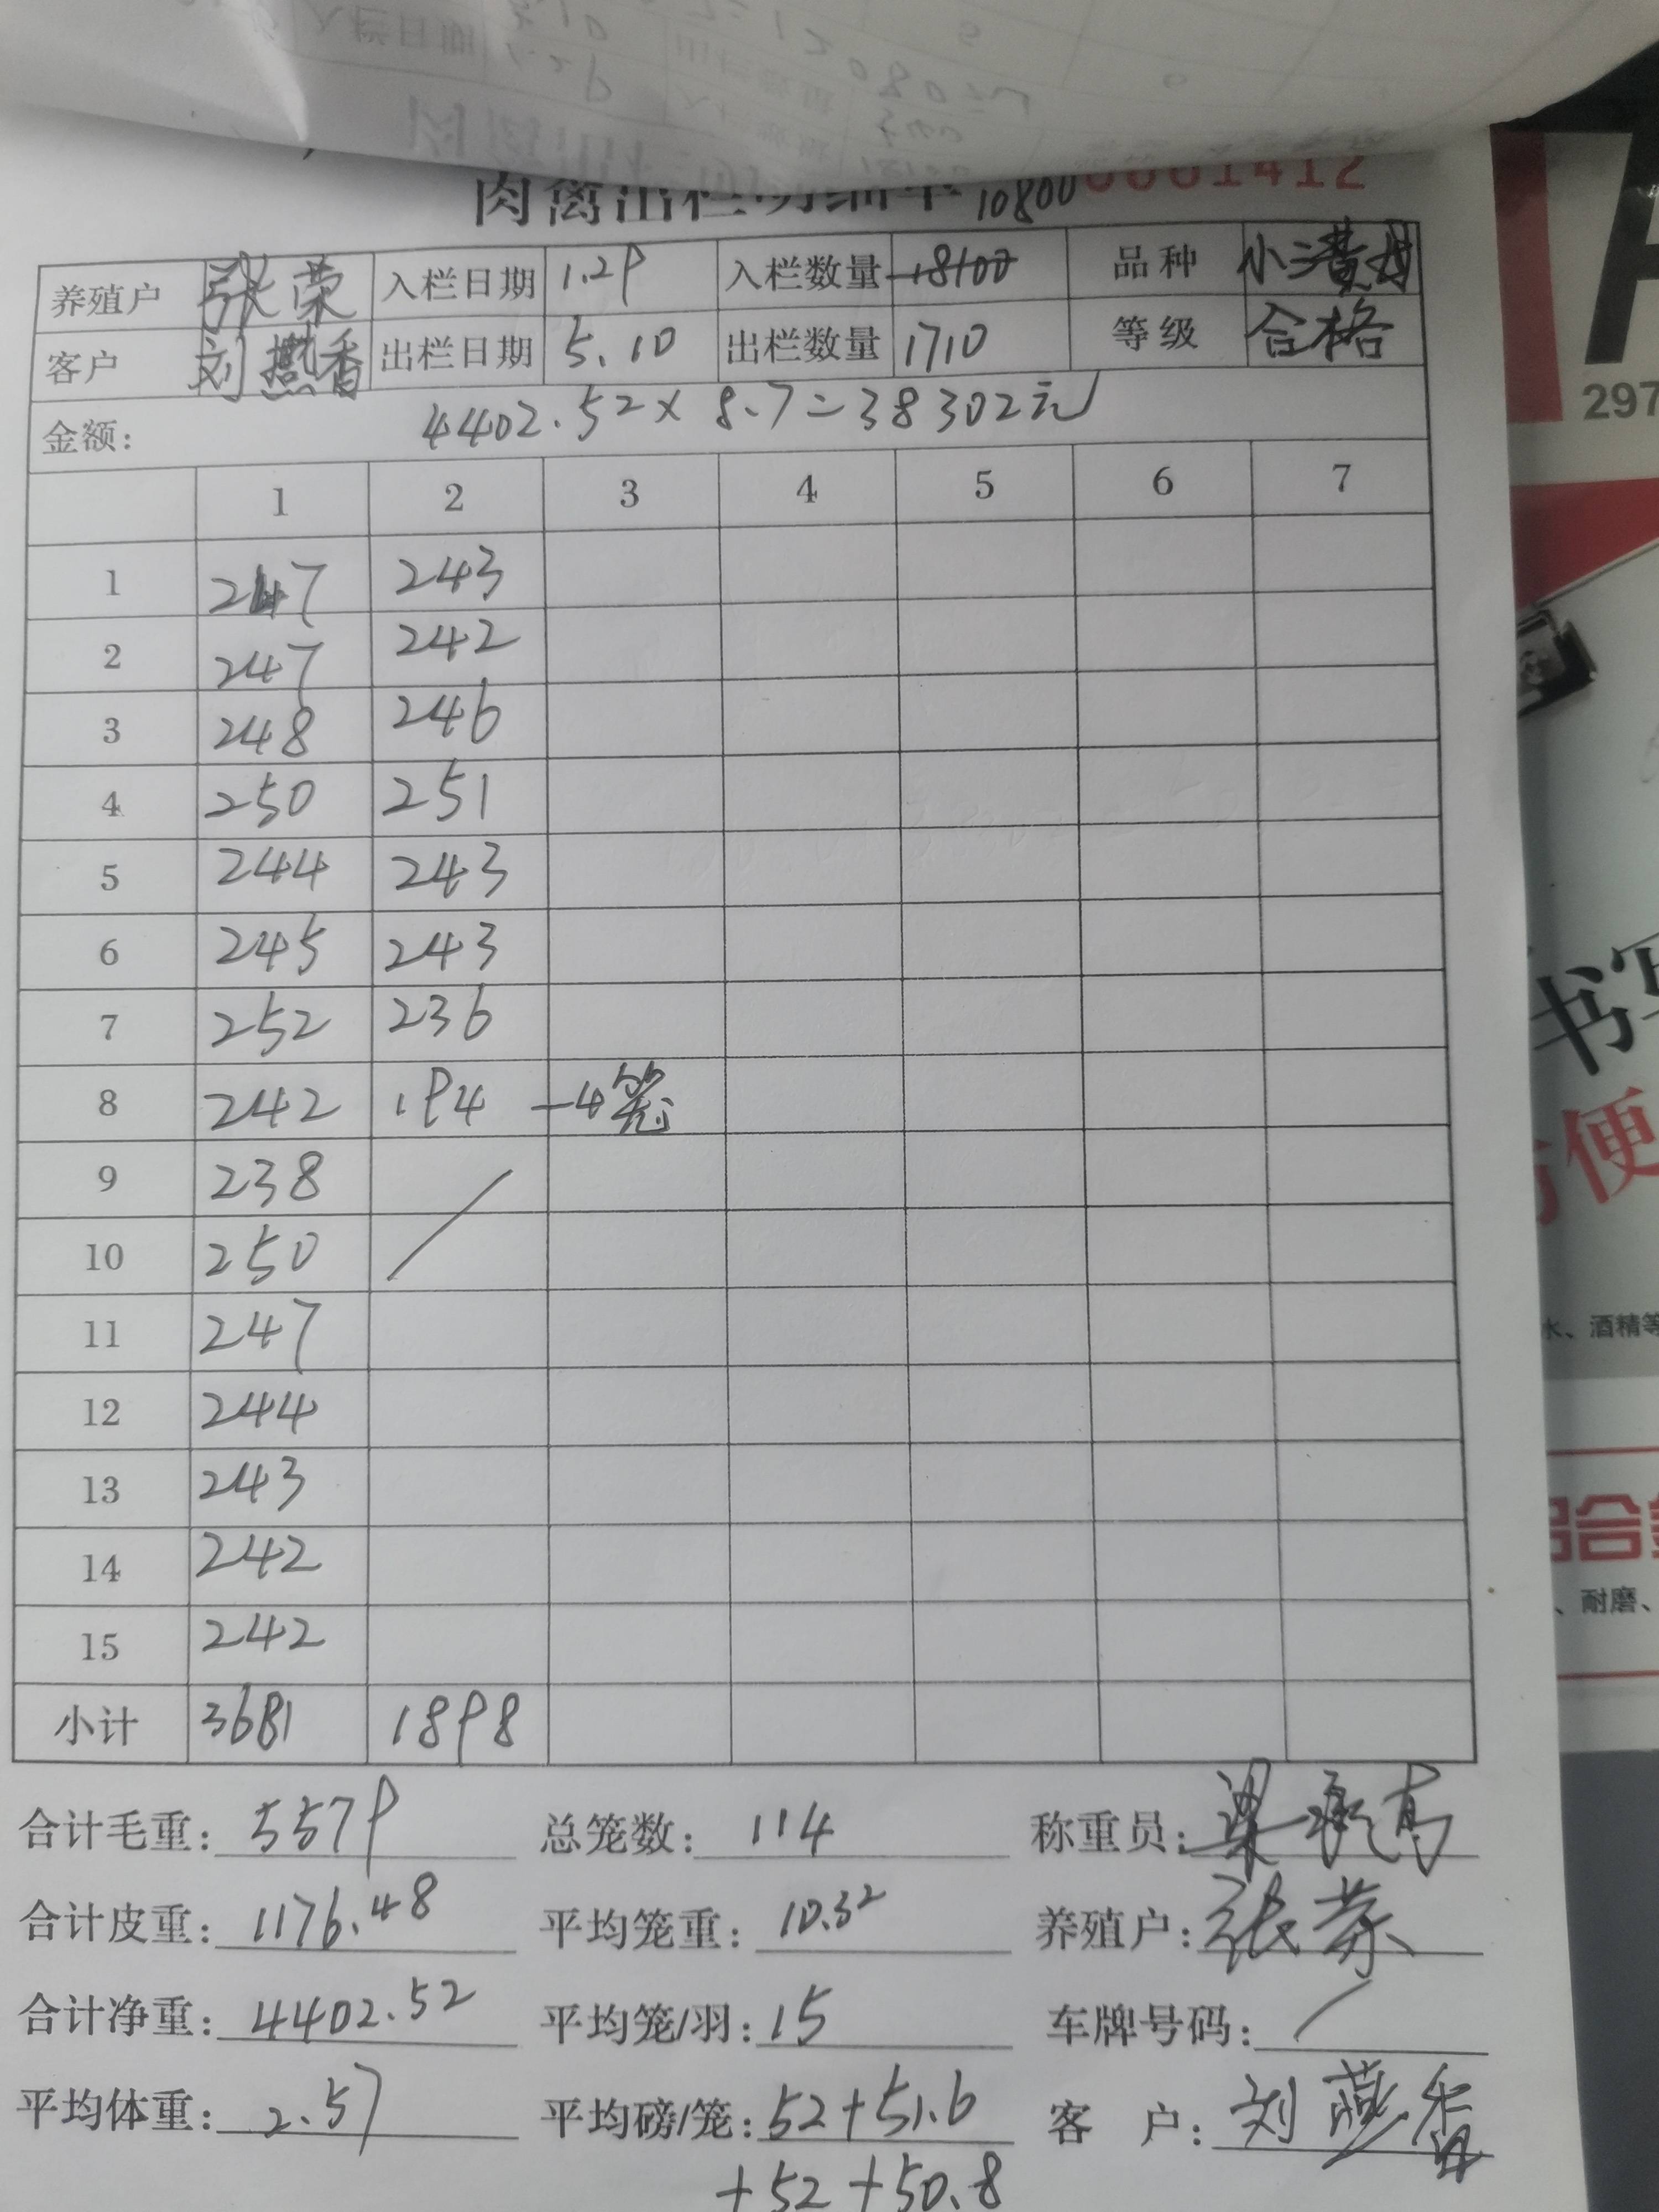 肉禽出栏明细单 10800 0001412
养殖户 张荣 入栏日期 1.29 入栏数量 18100 品种 小三黄母
客户 刘燕香 出栏日期 5.10 出栏数量 1710 等级 合格
金额: 4402.52×8.7=38302元
1 2 3 4 5 6 7
1 247 243
2 247 242
3 248 246
4 250 251
5 244 243
6 245 243
7 252 236
8 242 194 -4笼
9 238 /
10 250
11 247
12 244
13 243
14 242
15 242
小计 3681 1898
合计毛重: 5579 总笼数: 114 称重员:
合计皮重: 1176.48 平均笼重: 10.32 养殖户: 张荣
合计净重: 4402.52 平均笼/羽: 15 车牌号码: /
平均体重: 2.57 平均磅/笼: 52+51.6 客 户: 刘燕香
+52+50.8
297
书写
方便
水、酒精等
铝合金
、耐磨、